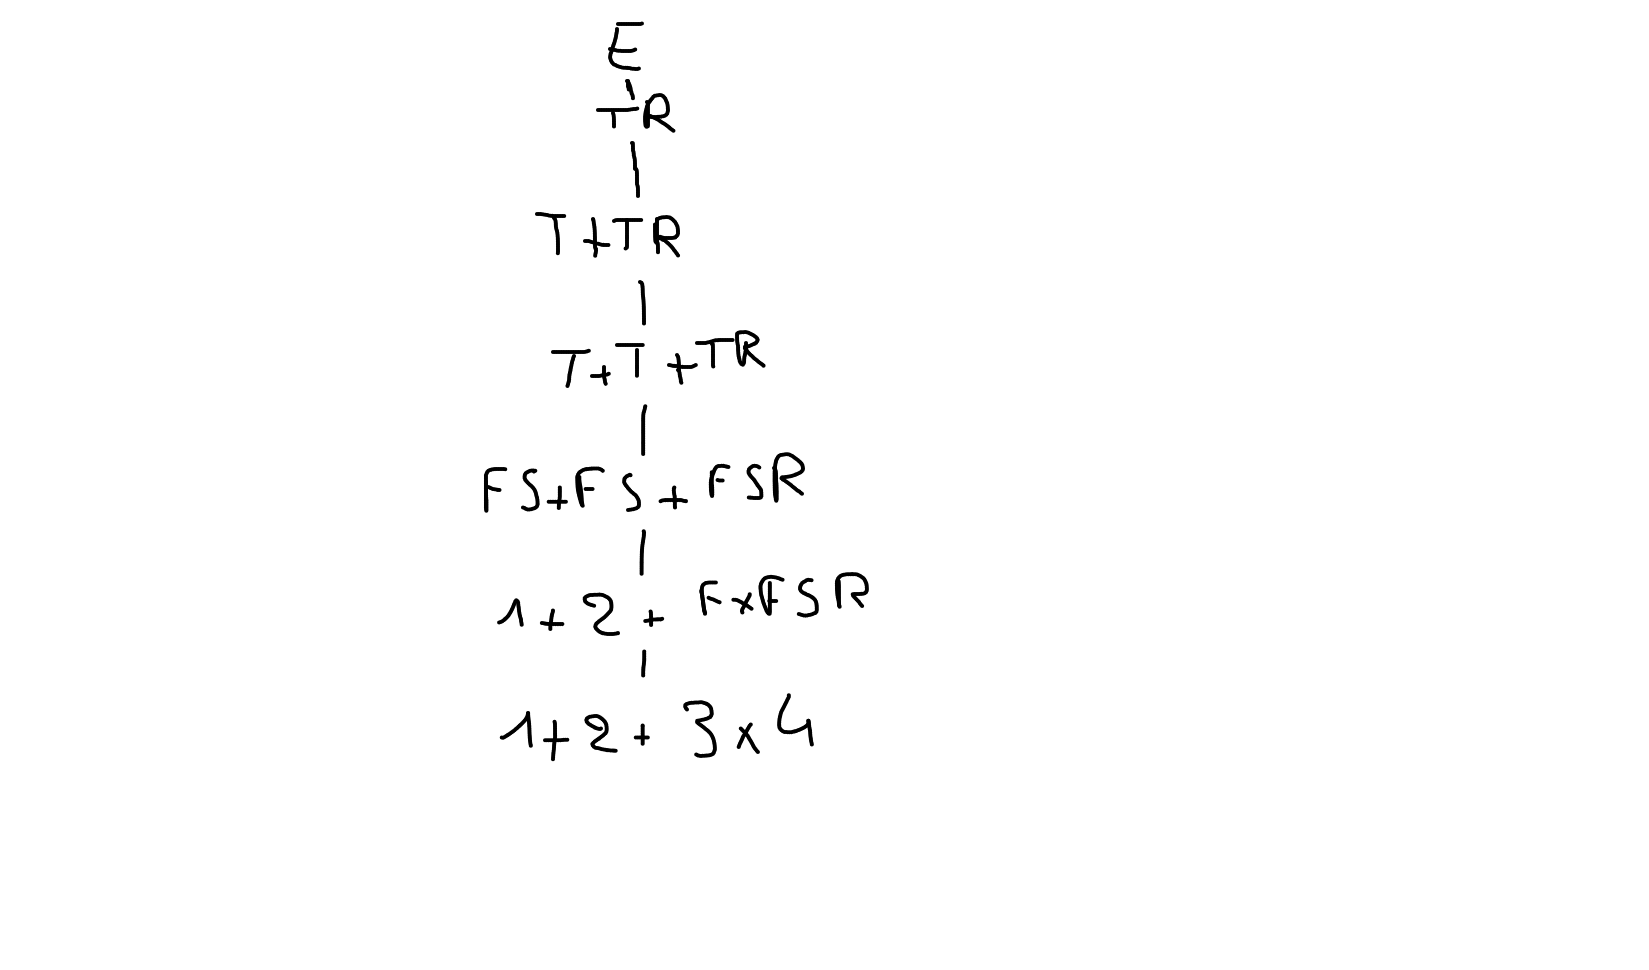 E
TR
T+TR
T+T+TR
FS+FS+FSR
1+2+FxFSR
1+2+3x4